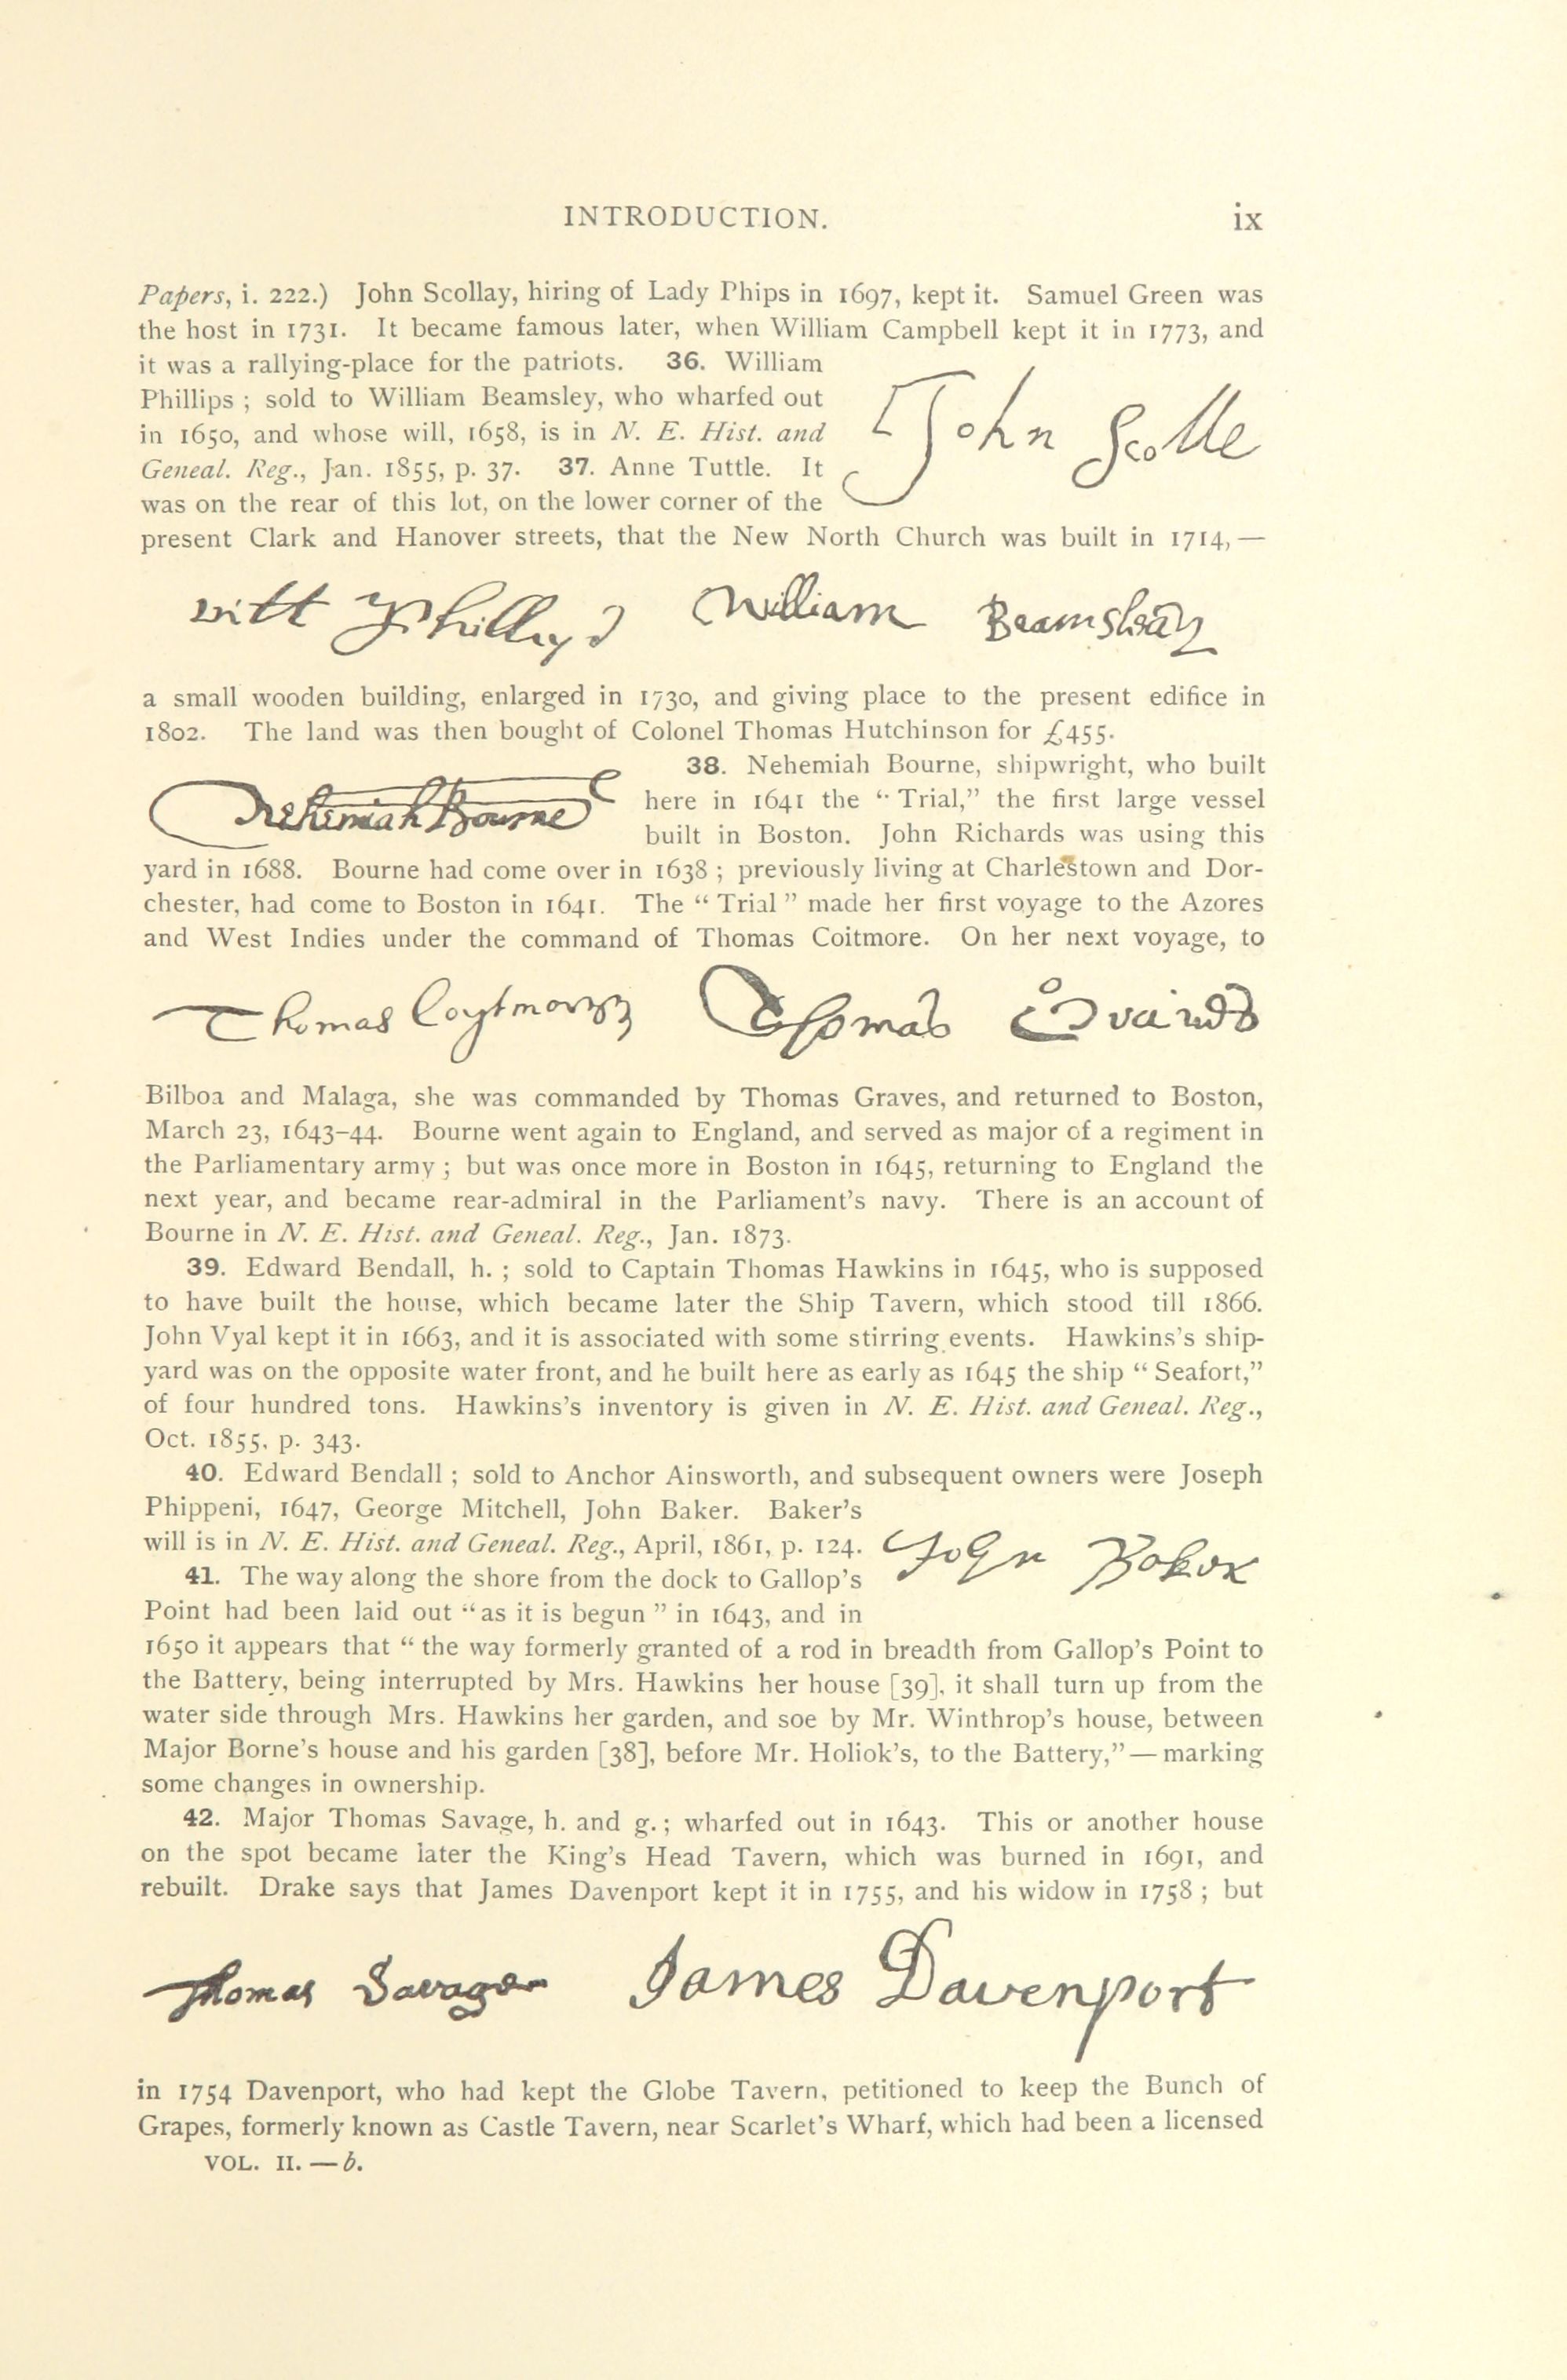 INTRODUCTION. ix
Papers, i. 222.) John Scollay, hiring of Lady Phips in 1697, kept it. Samuel Green was
the host in 1731. It became famous later, when William Campbell kept it in 1773, and
it was a rallying-place for the patriots. 36. William
Phillips ; sold to William Beamsley, who wharfed out
in 1650, and whose will, 1658, is in N. E. Hist. and
Geneal. Reg., Jan. 1855, p. 37. 37. Anne Tuttle. It
was on the rear of this lot, on the lower corner of the
John Scolle
present Clark and Hanover streets, that the New North Church was built in 1714, —
Will Phillips William Beamsley
a small wooden building, enlarged in 1730, and giving place to the present edifice in
1802. The land was then bought of Colonel Thomas Hutchinson for £455.
38. Nehemiah Bourne, shipwright, who built
Nehemiah Bourne
here in 1641 the “ Trial,” the first large vessel
built in Boston. John Richards was using this
yard in 1688. Bourne had come over in 1638 ; previously living at Charlestown and Dor-
chester, had come to Boston in 1641. The “ Trial ” made her first voyage to the Azores
and West Indies under the command of Thomas Coitmore. On her next voyage, to
Thomas Coytmore Thomas Graves
Bilboa and Malaga, she was commanded by Thomas Graves, and returned to Boston,
March 23, 1643–44. Bourne went again to England, and served as major of a regiment in
the Parliamentary army ; but was once more in Boston in 1645, returning to England the
next year, and became rear-admiral in the Parliament's navy. There is an account of
Bourne in N. E. Hist. and Geneal. Reg., Jan. 1873.
39. Edward Bendall, h. ; sold to Captain Thomas Hawkins in 1645, who is supposed
to have built the house, which became later the Ship Tavern, which stood till 1866.
John Vyal kept it in 1663, and it is associated with some stirring events. Hawkins's ship-
yard was on the opposite water front, and he built here as early as 1645 the ship “ Seafort,”
of four hundred tons. Hawkins's inventory is given in N. E. Hist. and Geneal. Reg.,
Oct. 1855, p. 343.
40. Edward Bendall ; sold to Anchor Ainsworth, and subsequent owners were Joseph
Phippeni, 1647, George Mitchell, John Baker. Baker's
will is in N. E. Hist. and Geneal. Reg., April, 1861, p. 124.
John Baker
41. The way along the shore from the dock to Gallop's
Point had been laid out “ as it is begun ” in 1643, and in
1650 it appears that “ the way formerly granted of a rod in breadth from Gallop's Point to
the Battery, being interrupted by Mrs. Hawkins her house [39], it shall turn up from the
water side through Mrs. Hawkins her garden, and soe by Mr. Winthrop's house, between
Major Borne's house and his garden [38], before Mr. Holiok's, to the Battery,” — marking
some changes in ownership.
42. Major Thomas Savage, h. and g. ; wharfed out in 1643. This or another house
on the spot became later the King's Head Tavern, which was burned in 1691, and
rebuilt. Drake says that James Davenport kept it in 1755, and his widow in 1758 ; but
Thomas Savage James Davenport
in 1754 Davenport, who had kept the Globe Tavern, petitioned to keep the Bunch of
Grapes, formerly known as Castle Tavern, near Scarlet's Wharf, which had been a licensed
VOL. II. — b.